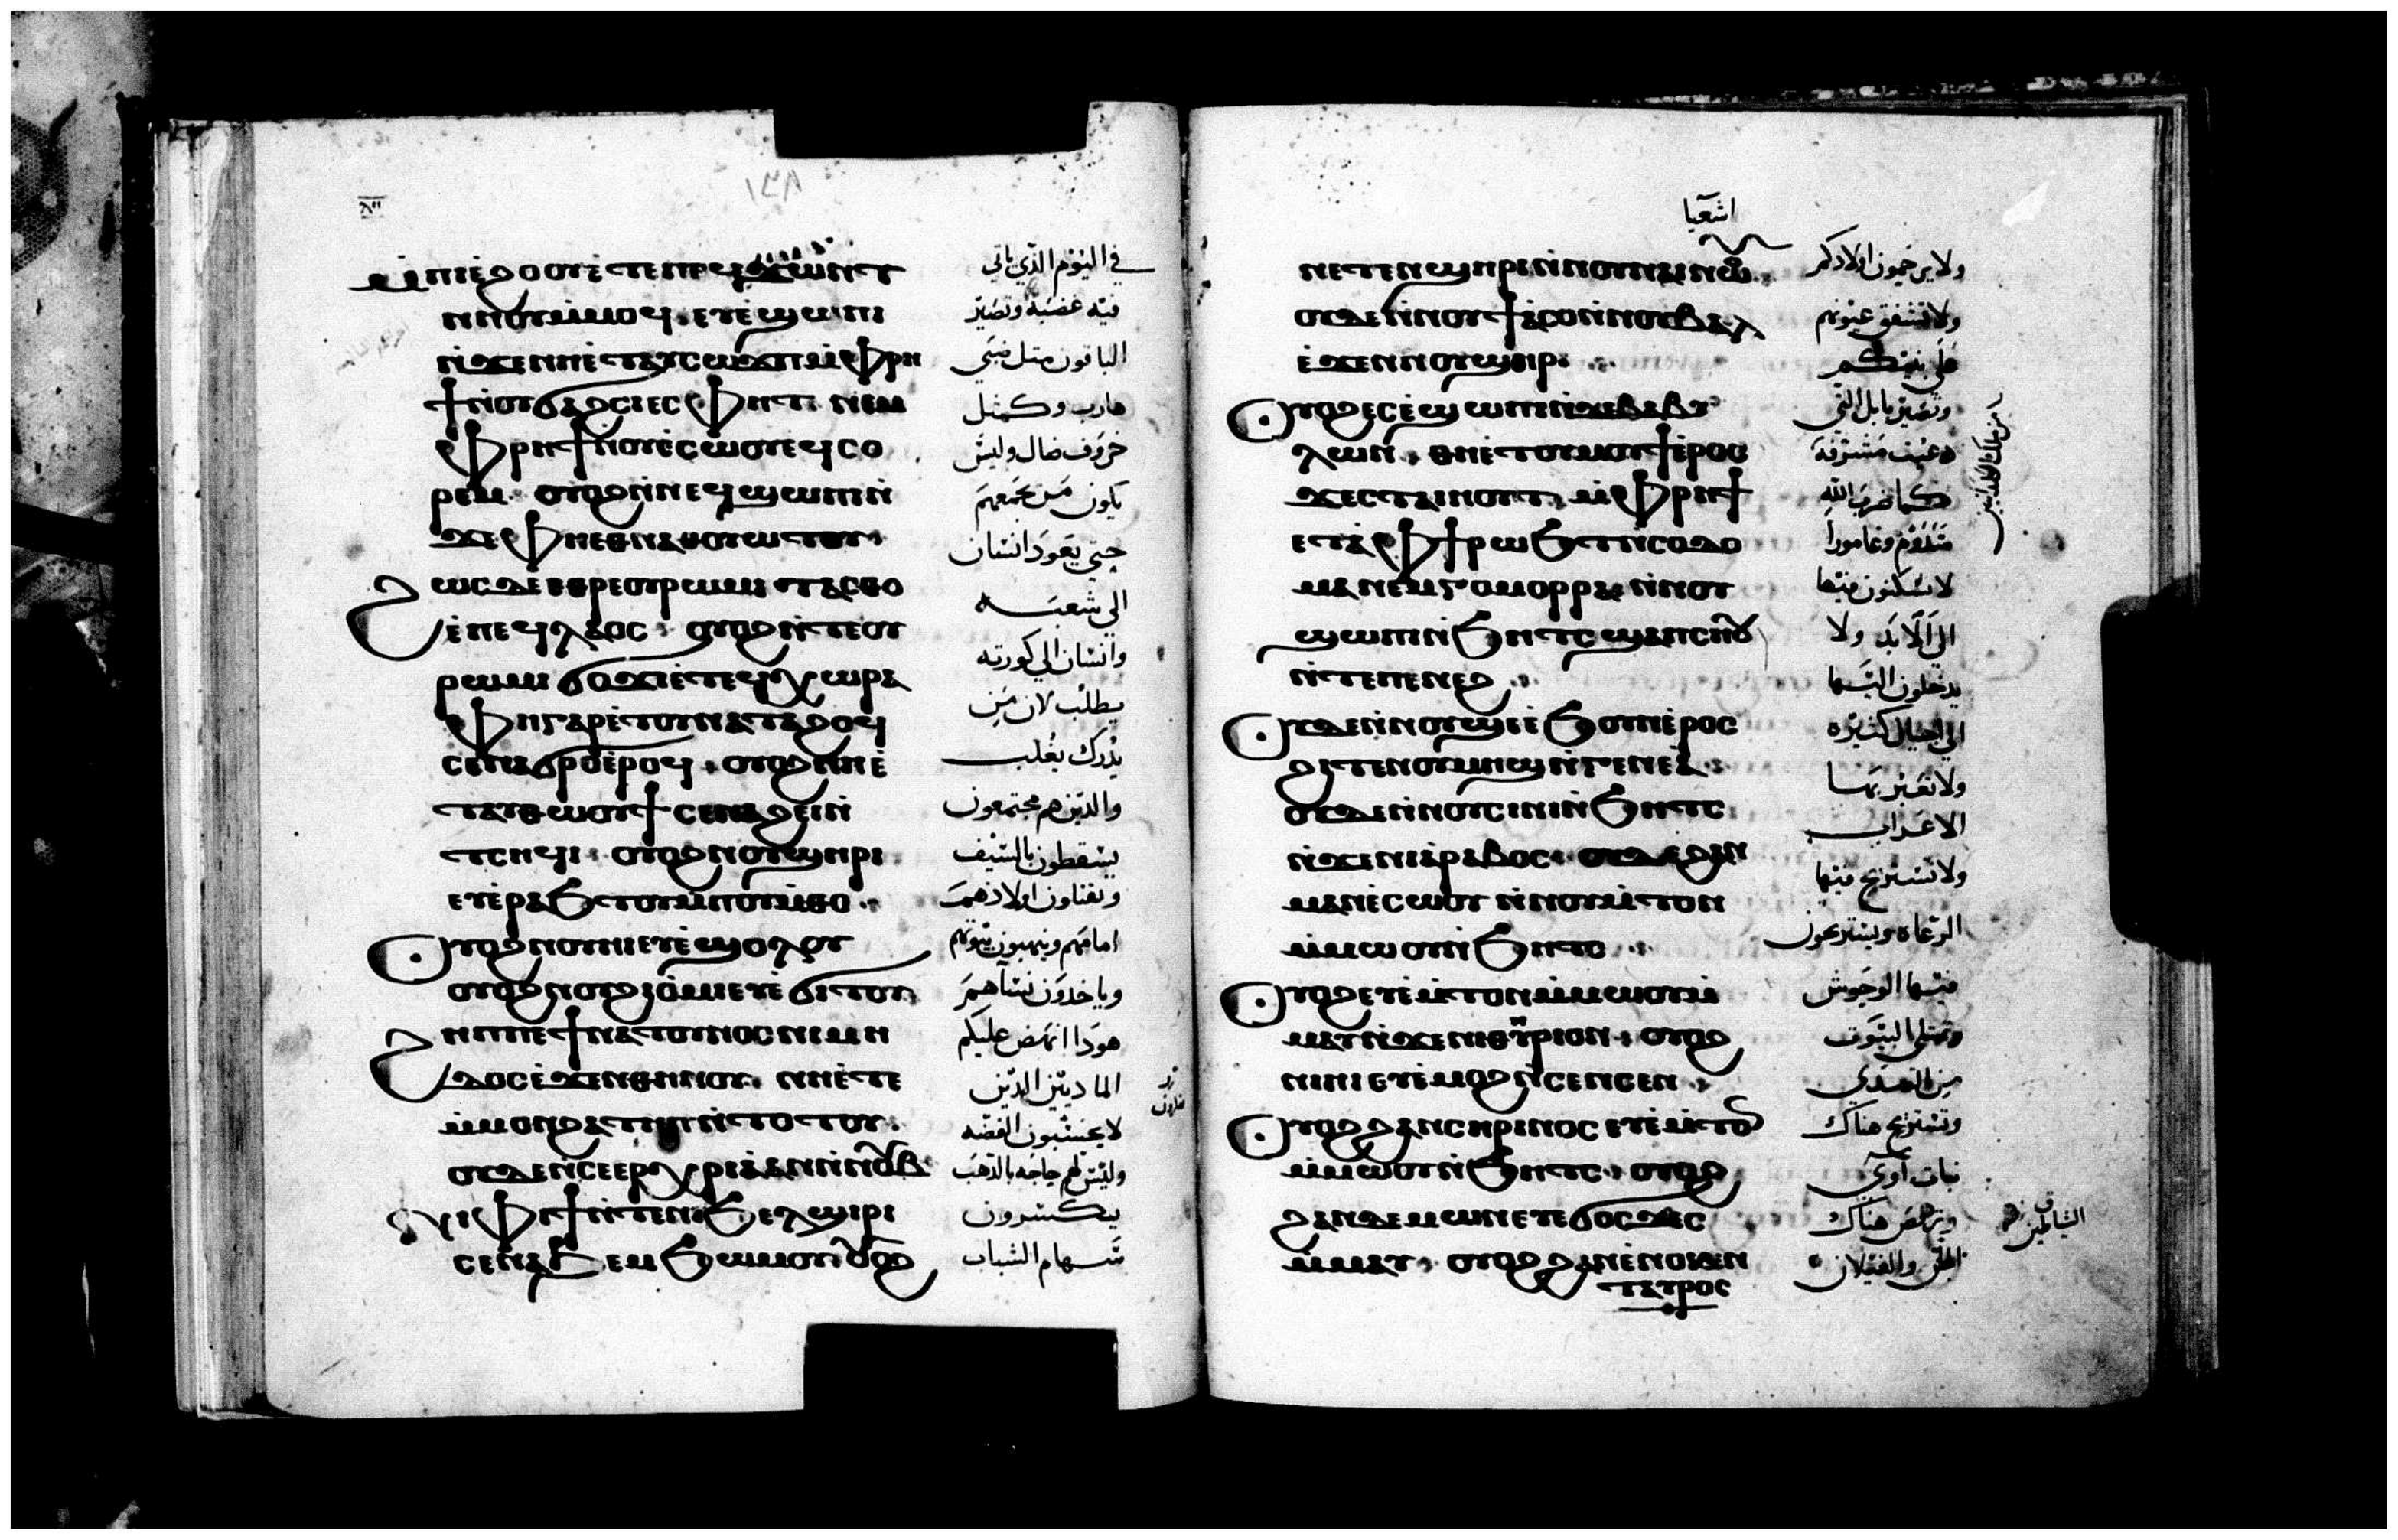 ١٣٨
ⲙ̀ⲡⲓⲉ̀ϩⲟⲟⲩⲉ̀ⲧⲉⲡⲉϥϫⲱⲛⲧ
ⲛⲛⲟⲩⲙ̀ⲙⲟϥ · ⲉⲩⲉ̀ϣⲱⲡⲓ
ⲛ̀ϫⲉⲛⲛⲉ̀ⲧⲁⲩⲥⲱϫⲡⲙ̀ⲫⲣⲏ
ϯⲛ̀ⲟⲩϭⲁϩⲥⲓⲉⲥⲫⲏⲧ ⲛⲉⲙ
ⲫⲣⲏϯⲛ̀ⲟⲩⲉ̀ⲥⲱⲟⲩⲉϥⲥⲟ
ⲣⲉⲙ · ⲟⲩⲟϩⲛ̀ⲛⲉϥϣⲱⲡⲓⲛ̀
ϫⲉⲫⲏⲉⲑⲛⲁⲑⲟⲩⲱⲧⲟⲩ
ϩⲱⲥⲇⲉⲉⲑⲣⲉⲟⲩⲣⲱⲙⲓ ⲧⲁⲥⲑⲟ
ⲉ̀ⲡⲉϥⲗⲁⲟⲥ · ⲟⲩⲟϩⲛ̀ⲧⲉⲟⲩ
ⲣⲱⲙⲓ ϭⲟϫⲓⲉ̀ⲧⲉϥⲭⲱⲣⲁ
ⲫⲏⲅⲁⲣⲉ̀ⲧⲟⲩⲛⲁⲧⲁϩⲟϥ
ⲥⲉⲛⲁϭⲣⲟⲉ̀ⲣⲟϥ · ⲟⲩⲟϩⲛⲏⲉ̀
ⲧⲁⲩⲑⲱⲟⲩϯⲥⲉⲛⲁϩⲉⲓⲛ̀
ⲧⲥⲏϥⲓ · ⲟⲩⲟϩⲛⲟⲩϣⲏⲣⲓ
ⲉⲩⲉ̀ⲣⲁϧⲧⲟⲩⲙ̀ⲡⲟⲩⲙ̀ⲑⲟ
ⲟⲩⲟϩⲛⲟⲩⲏⲓⲉⲩⲉ̀ϣⲟⲗⲟⲩ
ⲟⲩⲟϩⲛⲟⲩϩⲓⲟ̀ⲙⲉⲩⲉ̀ϭⲓⲧⲟⲩ
ϩⲏⲡⲡⲉϯⲛⲁⲧⲟⲩⲛⲟⲥⲛⲓⲙⲏ
ⲇⲟⲥⲉ̀ϫⲉⲛⲑⲏⲛⲟⲩ ⲛⲏⲉ̀ⲧⲉ
ⲙ̀ⲙⲟⲛϩⲁⲧⲏⲡ ⲛ̀ⲧⲟⲧⲟⲩ
ⲟⲩⲇⲉⲛ̀ⲥⲉⲉⲣⲭⲣⲓⲁ ⲁⲛⲛ̀ⲛⲟⲩⲃ
ϯⲫⲓϯⲛ̀ⲧⲉⲛⲓϧⲉⲗϣⲓⲣⲓ
ⲥⲉⲛⲁϧⲉⲙϧⲱⲙⲟⲩ ⲟⲩⲟϩ
في اليوم الذي ياتي
فيه غضبه وتصير
الباقون مثل ظبي
هارب وكمثل
خروف ضال وليس
يكون من يجمعهم
حتي يعود انسان
الي شعبه
وانسان الي كورته
يطلب لان من
يدرك يغلب
والذين هم مجتمعون
يسقطون بالسيف
ويقتلون اولادهم
امامهم وينهبون بيوتهم
وياخذون نسآهم
هوذا انهض عليكم
الماديين الذين
لا يحسبون الفضه
وليس لهم حاجه بالذهب
يكسرون
سهام الشباب
اشعيا
ⲛⲉⲧⲉⲛϣⲏⲣⲓⲛ̀ⲛⲟⲩⲛⲁⲓⲛⲱⲟⲩ
ⲟⲩⲇⲉⲛ̀ⲛⲟⲩϯⲁ̀ⲥⲟⲛ̀ⲛⲟⲩⲃⲁⲗ
ⲉ̀ϫⲉⲛⲛⲟⲩϣⲏⲣⲓ
ⲟⲩⲟϩⲉⲥⲉ̀ϣⲱⲡⲓⲛ̀ϫⲉⲃⲁⲃⲩ
ⲗⲱⲛ · ⲑⲏⲉ̀ⲧⲟⲩⲙⲟⲩϯⲉ̀ⲣⲟⲥ
ϫⲉⲥⲧⲁⲓⲏⲟⲩⲧ ⲙ̀ⲫⲣⲏϯ
ⲉⲧⲁ̀ⲫϯⲣⲱϧⲧⲛ̀ⲥⲟⲇⲟ
ⲙⲁⲛⲉⲙⲅⲟⲙⲟⲣⲣⲁ ⲛ̀ⲛⲟⲩ
ϣⲱⲡⲓⲛ̀ϧⲏⲧⲥ ϣⲁⲡⲥⲏⲟⲩ
ⲛ̀ⲧⲉⲡⲉⲛⲉϩ
ⲟⲩⲇⲉⲛ̀ⲛⲟⲩϣⲉⲉ̀ϧⲟⲩⲛⲉ̀ⲣⲟⲥ
ϩⲓⲧⲉⲛⲟⲩⲙⲏϣⲛ̀ⲅⲉⲛⲉⲁ̀
ⲟⲩⲇⲉⲛ̀ⲛⲟⲩⲥⲓⲛⲓⲛ̀ϧⲏⲧⲥ
ⲛ̀ϫⲉⲛⲓⲁ̀ⲣⲁⲃⲟⲥ ⲟⲩⲇⲉϩⲁⲛ
ⲙⲁⲛⲉ̀ⲥⲱⲟⲩ ⲛ̀ⲛⲟⲩⲙ̀ⲧⲟⲛ
ⲙ̀ⲙⲱⲟⲩⲛ̀ϧⲏⲧⲥ
ⲟⲩⲟϩⲉⲩⲉ̀ⲙ̀ⲧⲟⲛⲙ̀ⲙⲱⲟⲩⲙ̀
ⲙⲁⲩⲛ̀ϫⲉⲛⲓⲑⲏⲣⲓⲟⲛ · ⲟⲩⲟϩ
ⲛⲓⲏⲓ ⲉⲩⲉ̀ⲙⲟϩⲛ̀ⲥⲉⲛⲥⲉⲛ
ⲟⲩⲟϩϩⲁⲛⲥⲏⲣⲓⲛⲟⲥ ⲉⲩⲉ̀ⲙ̀ⲧⲟⲛ
ⲙ̀ⲙⲱⲟⲩⲛ̀ϧⲏⲧⲥ · ⲟⲩⲟϩ
ϩⲁⲛⲇⲉⲙⲱⲛⲉⲩⲉ̀ϭⲟⲥϫⲉⲥ
ⲙ̀ⲙⲁⲩ · ⲟⲩⲟϩϩⲁⲛⲉ̀ⲛⲟⲕⲉⲛ
ⲧⲁⲩⲣⲟⲥ
ولا يرحمون اولادكم
ولا تشفق عيونهم
علي بنيكم
وتصير بابل التي
دعيت مشرفة
كما ضرب الله
سدوم وغامورا
لا يسكنون فيها
الي الابد ولا
يدخلون اليها
الي اجيال كثيره
ولا تعبر بها
الاعراب
ولا تستريح فيها
الرعاه ويستريحون
فيها الوحوش
وتمتلي البيوت
من الصدي
وتستريح هناك
بنات آوي
ويرقص هناك
الجن والفيلان
من ملك الكلدانيين
الشياطين